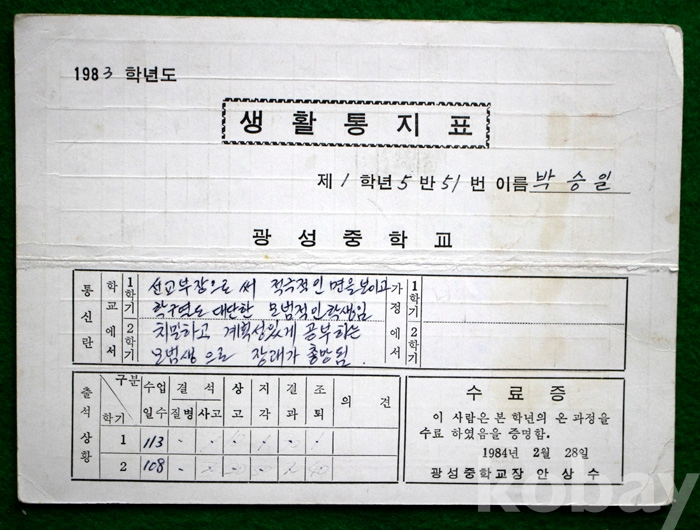 1983 학년도
생활통지표
제 1 학년 5 반 51 번 이름 박승일
광성중학교
통신란
학교에서
1학기
선교부장으로써 적극적인 면을 보이고
학구열도 대단한 모범적인 학생임
2학기
치밀하고 계획성있게 공부하는
모범생으로 장래가 촉망됨.
가정에서
1학기
2학기
출석상황
구분 수업일수 결석 상고 지각 결과 조퇴 의견
학기 질병 사고
1 113
2 108
수료증
이 사람은 본 학년의 온 과정을
수료 하였음을 증명함.
1984년 2월 28일
광성중학교장 안상수
kobay